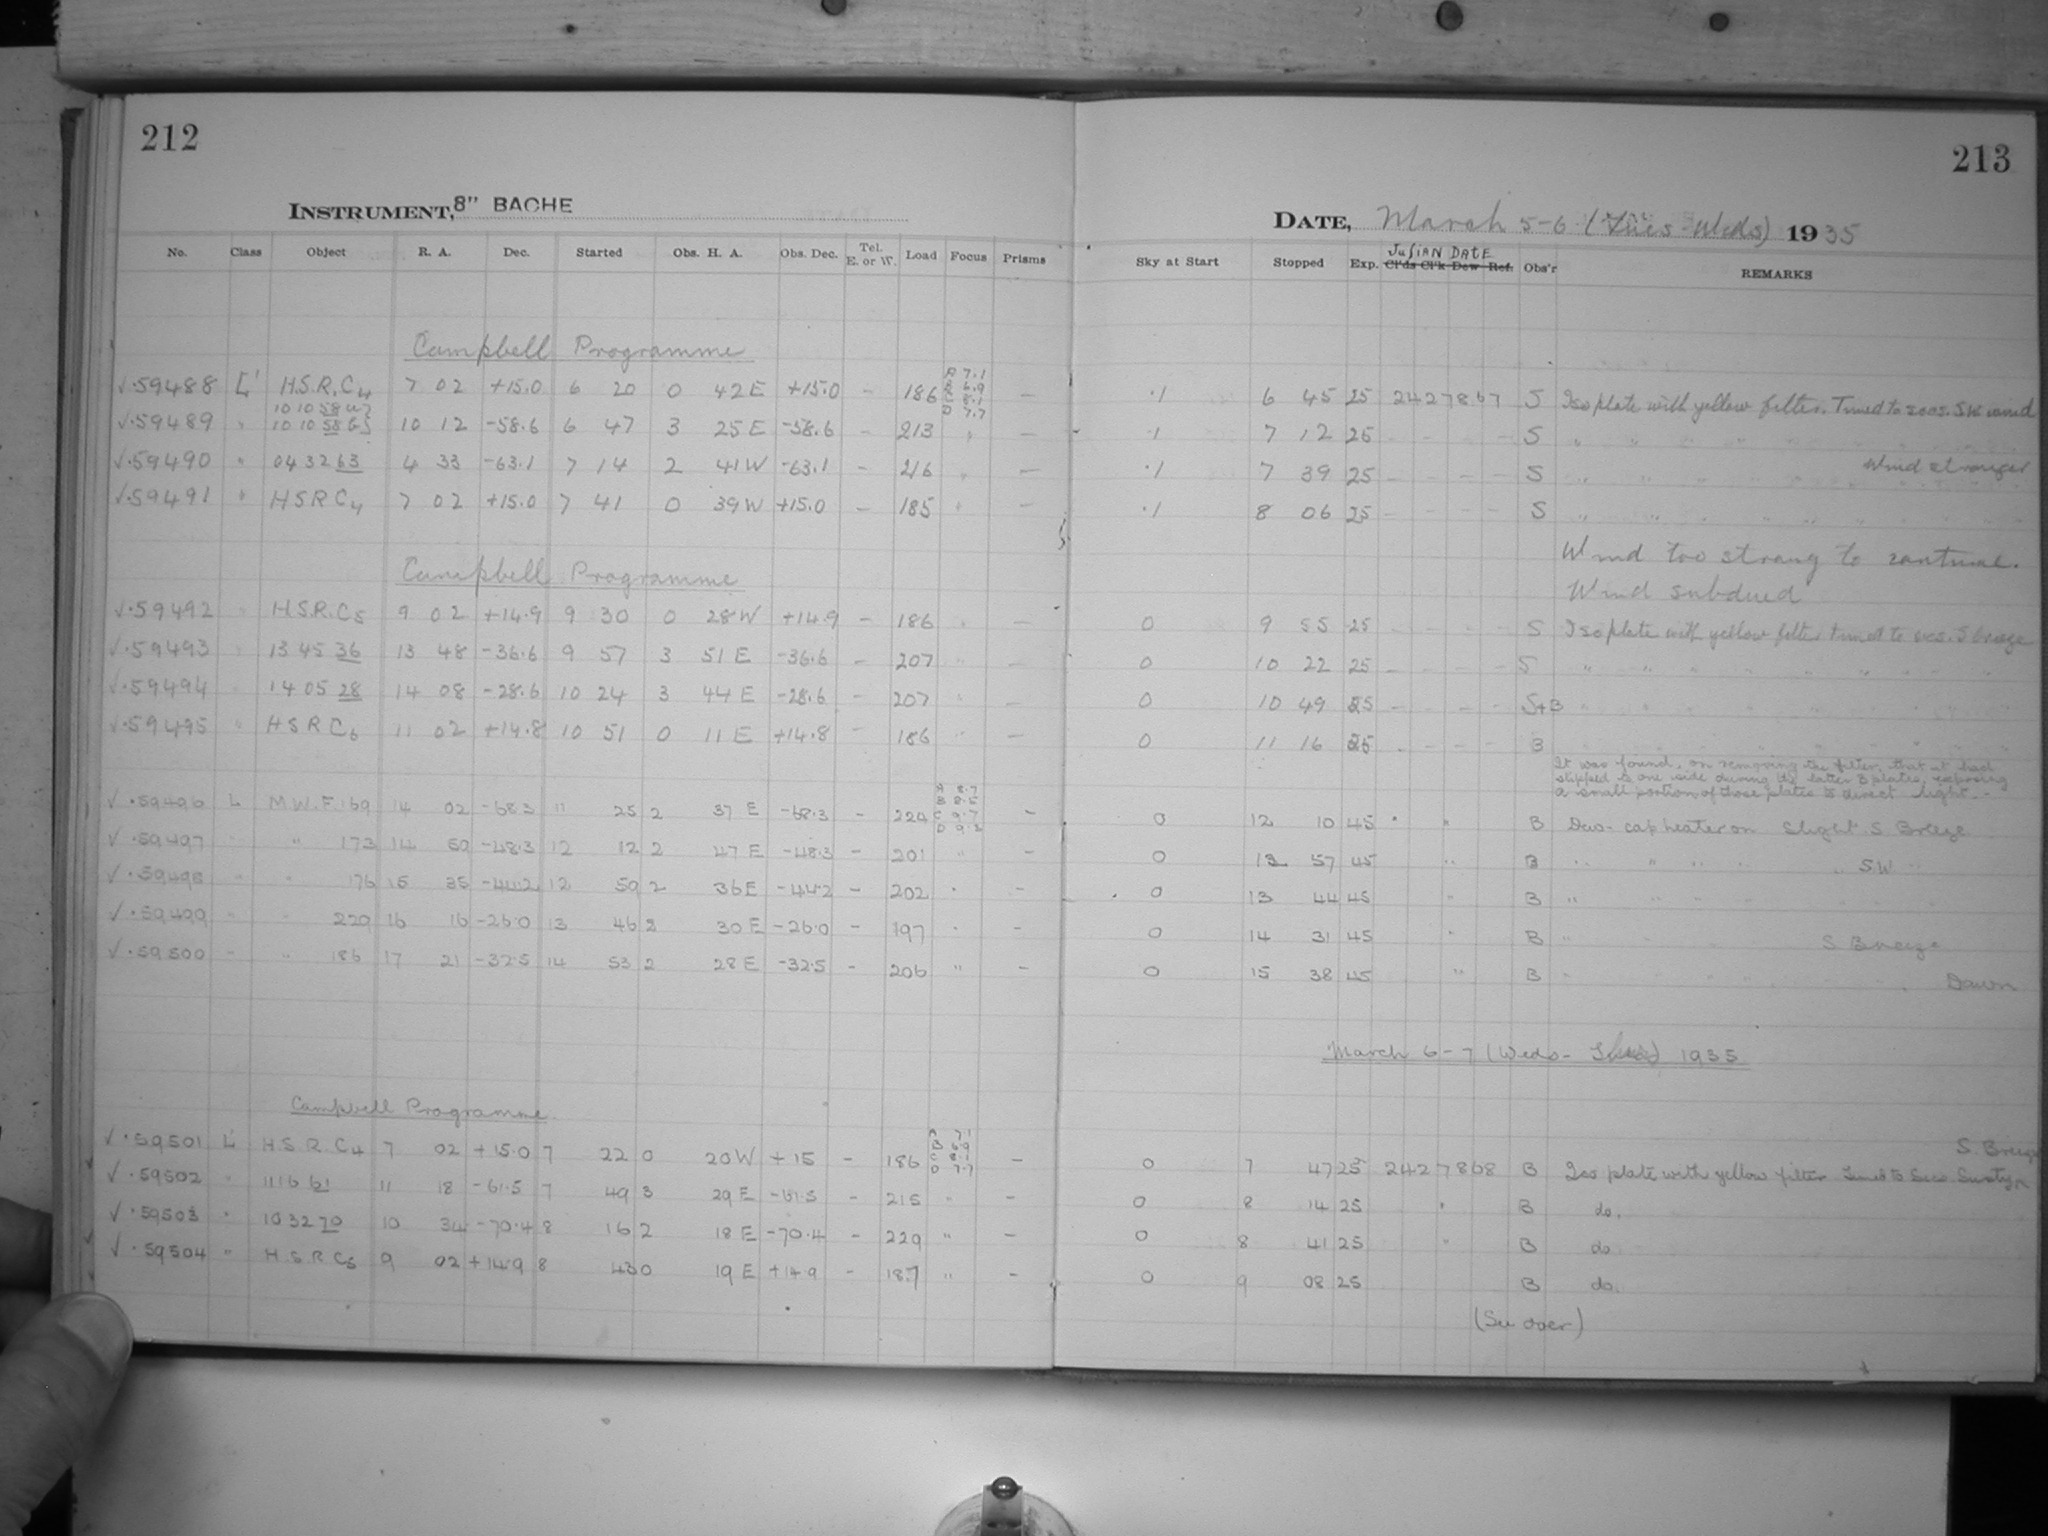 212
213
INSTRUMENT, 8" BACHE
DATE, March 5-6 (Tues-Weds) 1935
No. Class Object R. A. Dec. Started Obs. H. A. Obs. Dec. Tel. E. or W. Load Focus Prisms Sky at Start Stopped Exp. JULIAN DATE Cl'ds Cl'k Dew Ref. Obs'r REMARKS
Campbell Programme
√·59488 L' H.S.R.C4 7 02 +15.0 6 20 0 42E +15.0 – 186 A 7.1 B 6.9 C 8.1 D 7.7 – ·1 6 45 25 2427867 S Iso plate with yellow filter. Timed to secs. SW wind
√·59489 " 10 12 -58.6 6 47 3 25E -58.6 – 213 " – ·1 7 12 25 – – – – S " " "
√·59490 " 04 32 63 4 33 -63.1 7 14 2 41W -63.1 – 216 " – ·1 7 39 25 – – – – S " " " Wind stronger
√·59491 " HSRC4 7 02 +15.0 7 41 0 39W +15.0 – 185 " – ·1 8 06 25 – – – – S " " "
Wind too strong to continue.
Campbell Programme
Wind subdued
√·59492 " H.S.R.C5 9 02 +14.9 9 30 0 28W +14.9 – 186 " – 0 9 55 25 – – – – S Iso plate with yellow filter timed to secs. S breeze
√·59493 " 13 45 36 13 48 -36.6 9 57 3 51E -36.6 – 207 " – 0 10 22 25 – – – – S " " "
√·59494 " 14 05 28 14 08 -28.6 10 24 3 44E -28.6 – 207 " – 0 10 49 25 – – – – S+B " " "
√·59495 " HSRC6 11 02 +14.8 10 51 0 11E +14.8 – 186 " – 0 11 16 25 – – – – B " " "
It was found, on removing the filter, that it had
slipped to one side during the latter 3 plates, exposing
a small portion of those plates to direct light.
√·59496 L M.W.F. 169 14 02 -68.3 11 25 2 37E -68.3 – 224 A 8.7 B 8.5 C 9.7 D 9.3 – 0 12 10 45 " " B Dew-cap heater on Slight S. Breeze
√·59497 " " 173 14 59 -48.3 12 12 2 47E -48.3 – 201 " – 0 12 57 45 " B " " " " SW "
√·59498 " " 176 15 35 -44.2 12 59 2 36E -44.2 – 202 " – 0 13 44 45 " B " " " "
√·59499 " " 220 16 16 -26.0 13 46 2 30E -26.0 – 197 " – 0 14 31 45 " B " S. Breeze
√·59500 " " 186 17 21 -32.5 14 53 2 28E -32.5 – 206 " – 0 15 38 45 " B " Dawn
March 6-7 (Weds-Thurs) 1935
Campbell Programme
S. Breeze
√·59501 L' H.S.R.C4 7 02 +15.0 7 22 0 20W +15 – 186 A 7.1 B 6.9 C 8.1 D 7.7 – 0 7 47 25 2427868 B Iso plate with yellow filter Timed to Secs.
√·59502 " 11 16 61 11 18 -61.5 7 49 3 29E -61.5 – 215 " – 0 8 14 25 " B do.
√·59503 " 10 32 70 10 34 -70.4 8 16 2 18E -70.4 – 229 " – 0 8 41 25 " B do
√·59504 " H.S.R.C5 9 02 +14.9 8 43 0 19E +14.9 – 187 " – 0 9 08 25 B do.
(See over)